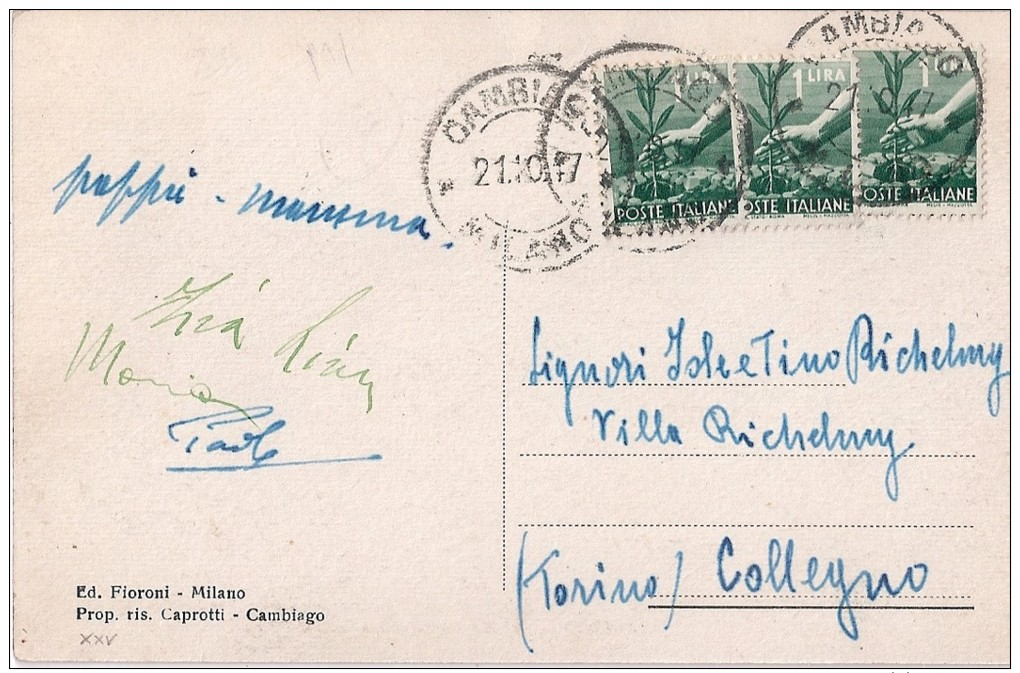 CAMBIAGO
21.10.47
MILANO
1 LIRA
POSTE ITALIANE
1 LIRA
POSTE ITALIANE
1
POSTE ITALIANE
CAMBIAGO
21.10.47
pappà - mamma.
Zia
Maria
Paolo
Signori Isle e Tino Richelmy
Villa Richelmy
(Torino) Collegno
Ed. Fioroni - Milano
Prop. ris. Caprotti - Cambiago
XXV